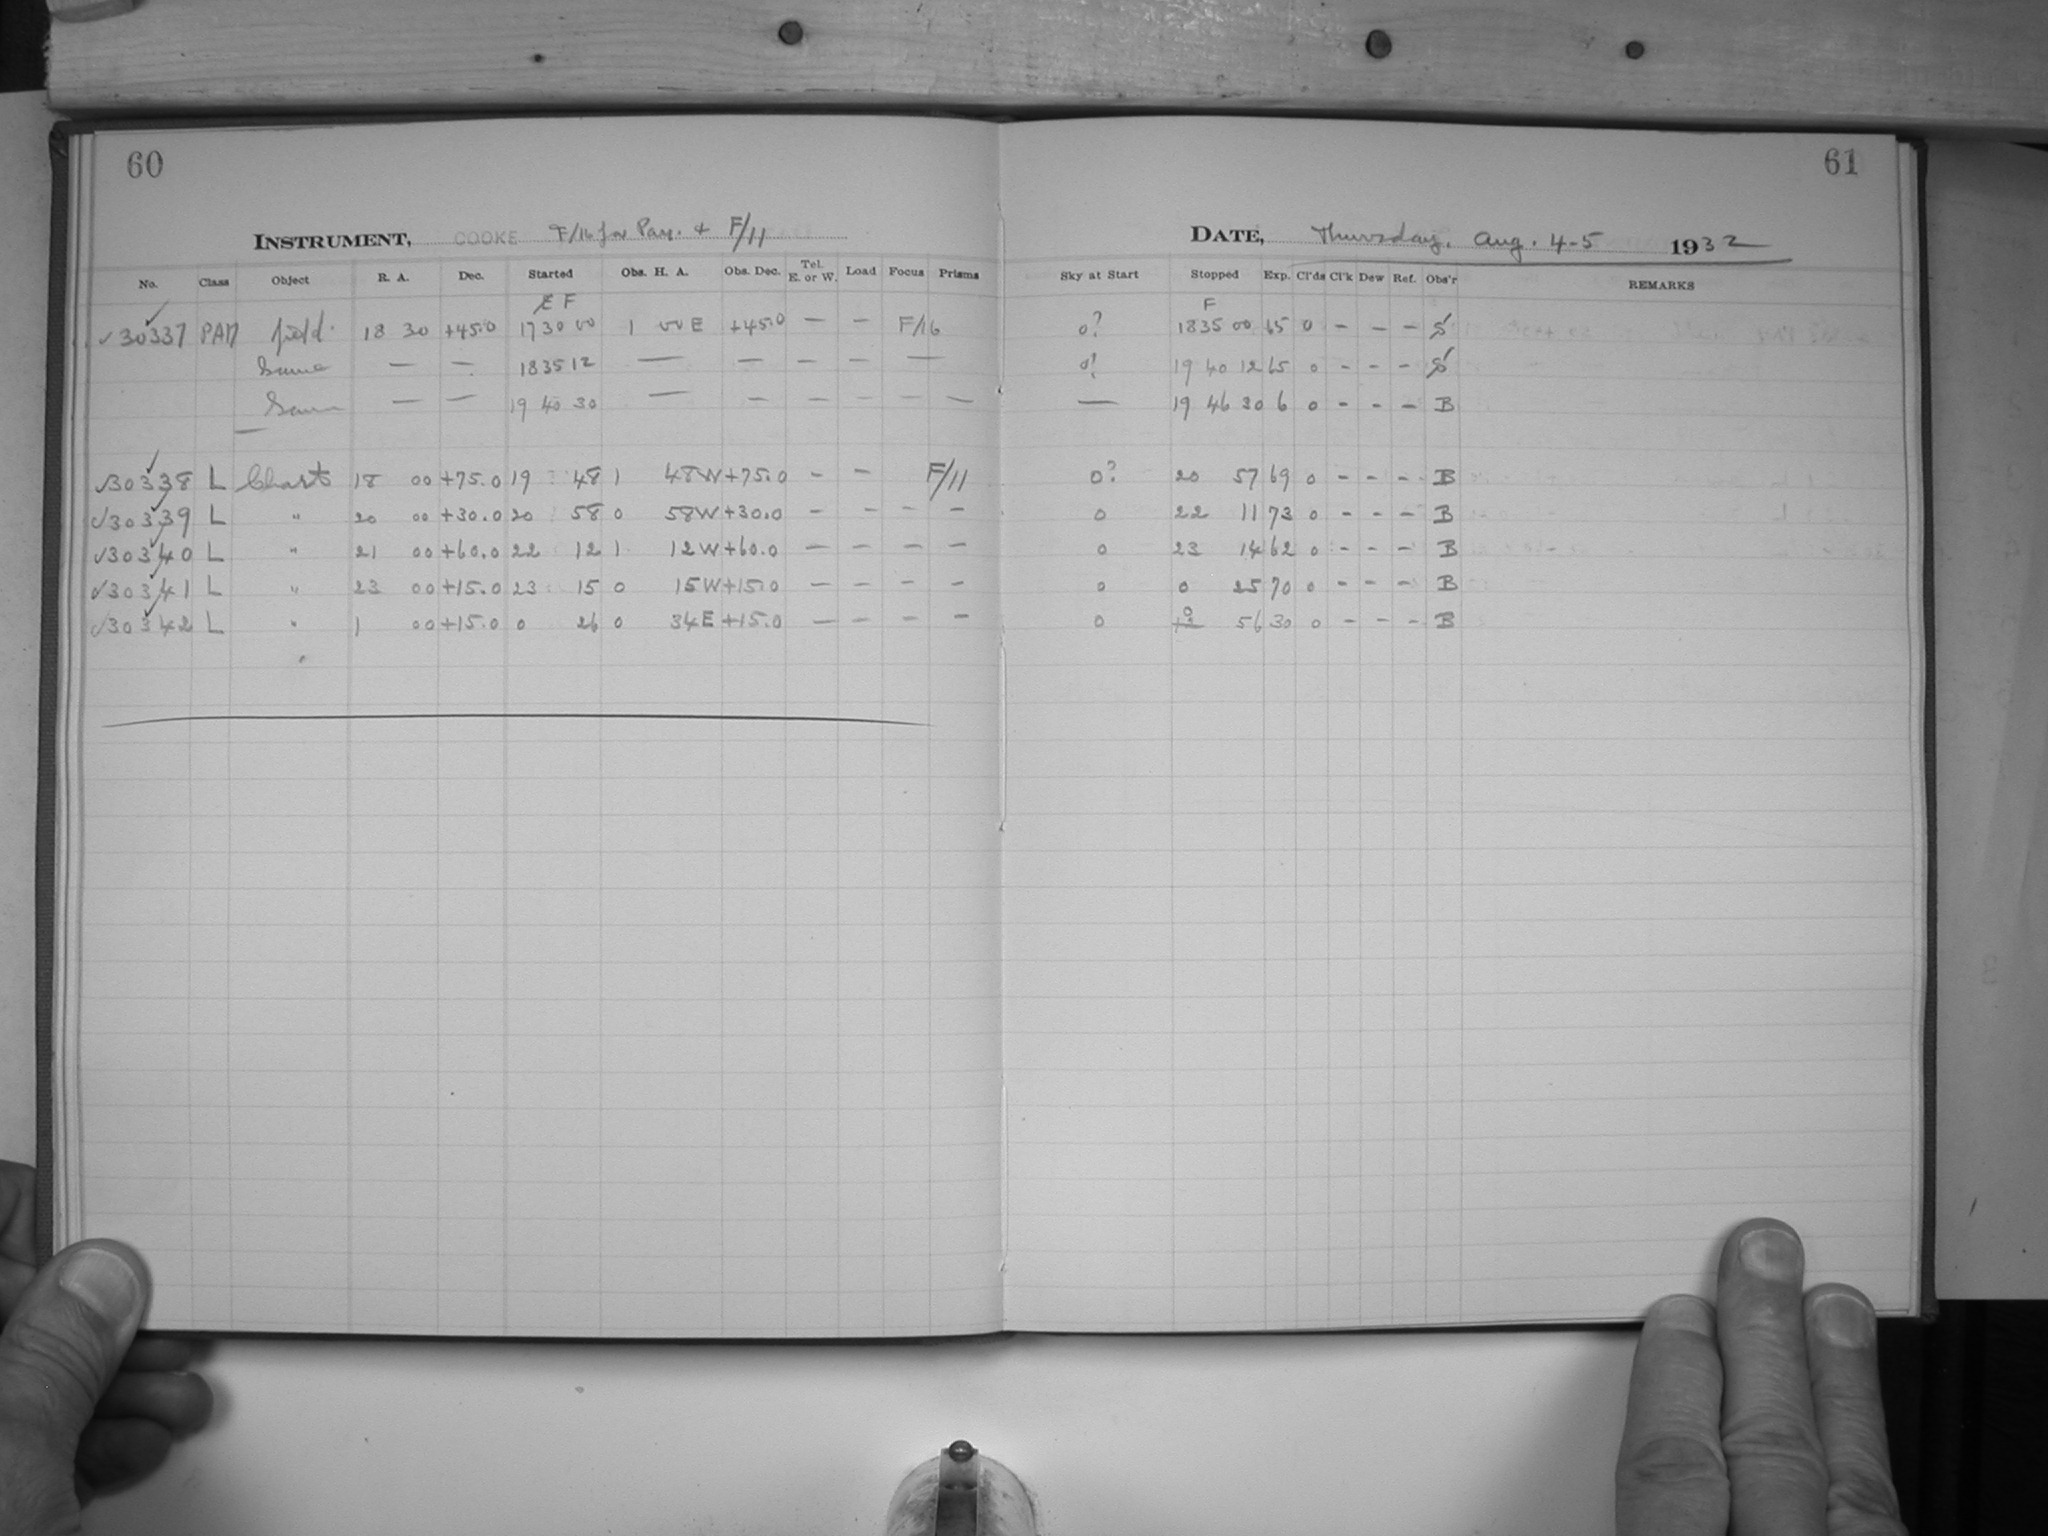 60
61
INSTRUMENT, COOKE F/16 for Pan. + F/11
DATE, Thursday, Aug. 4-5 1932
No. Class Object R. A. Dec. Started Obs. H. A. Obs. Dec. Tel. E. or W. Load Focus Prisms Sky at Start Stopped Exp. Cl'ds Cl'k Dew Ref. Obs'r REMARKS
F F
✓30337 PAN field 18 30 +45.0 17 30 00 1 00 E +45.0 — — F/16 0? 18 35 00 65 0 - - - S
Same — — 18 35 12 — — — — — 0? 19 40 12 65 0 - - - S
Same — — 19 40 30 — — — — — — — 19 46 30 6 0 - - - B
✓30338 L Chart 18 00 +75.0 19 48 1 48W +75.0 - - F/11 0? 20 57 69 0 - - - B
✓30339 L " 20 00 +30.0 20 58 0 58W +30.0 - - - - 0 22 11 73 0 - - - B
✓30340 L " 21 00 +60.0 22 12 1 12W +60.0 — — — — 0 23 14 62 0 - - - B
✓30341 L " 23 00 +15.0 23 15 0 15W +15.0 — — — — 0 0 25 70 0 - - - B
✓30342 L " 1 00 +15.0 0 26 0 34E +15.0 — — — — 0 0 56 30 0 - - - B